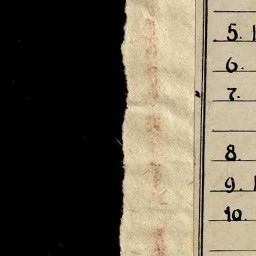 5.
6.
7.
8.
9.
10.